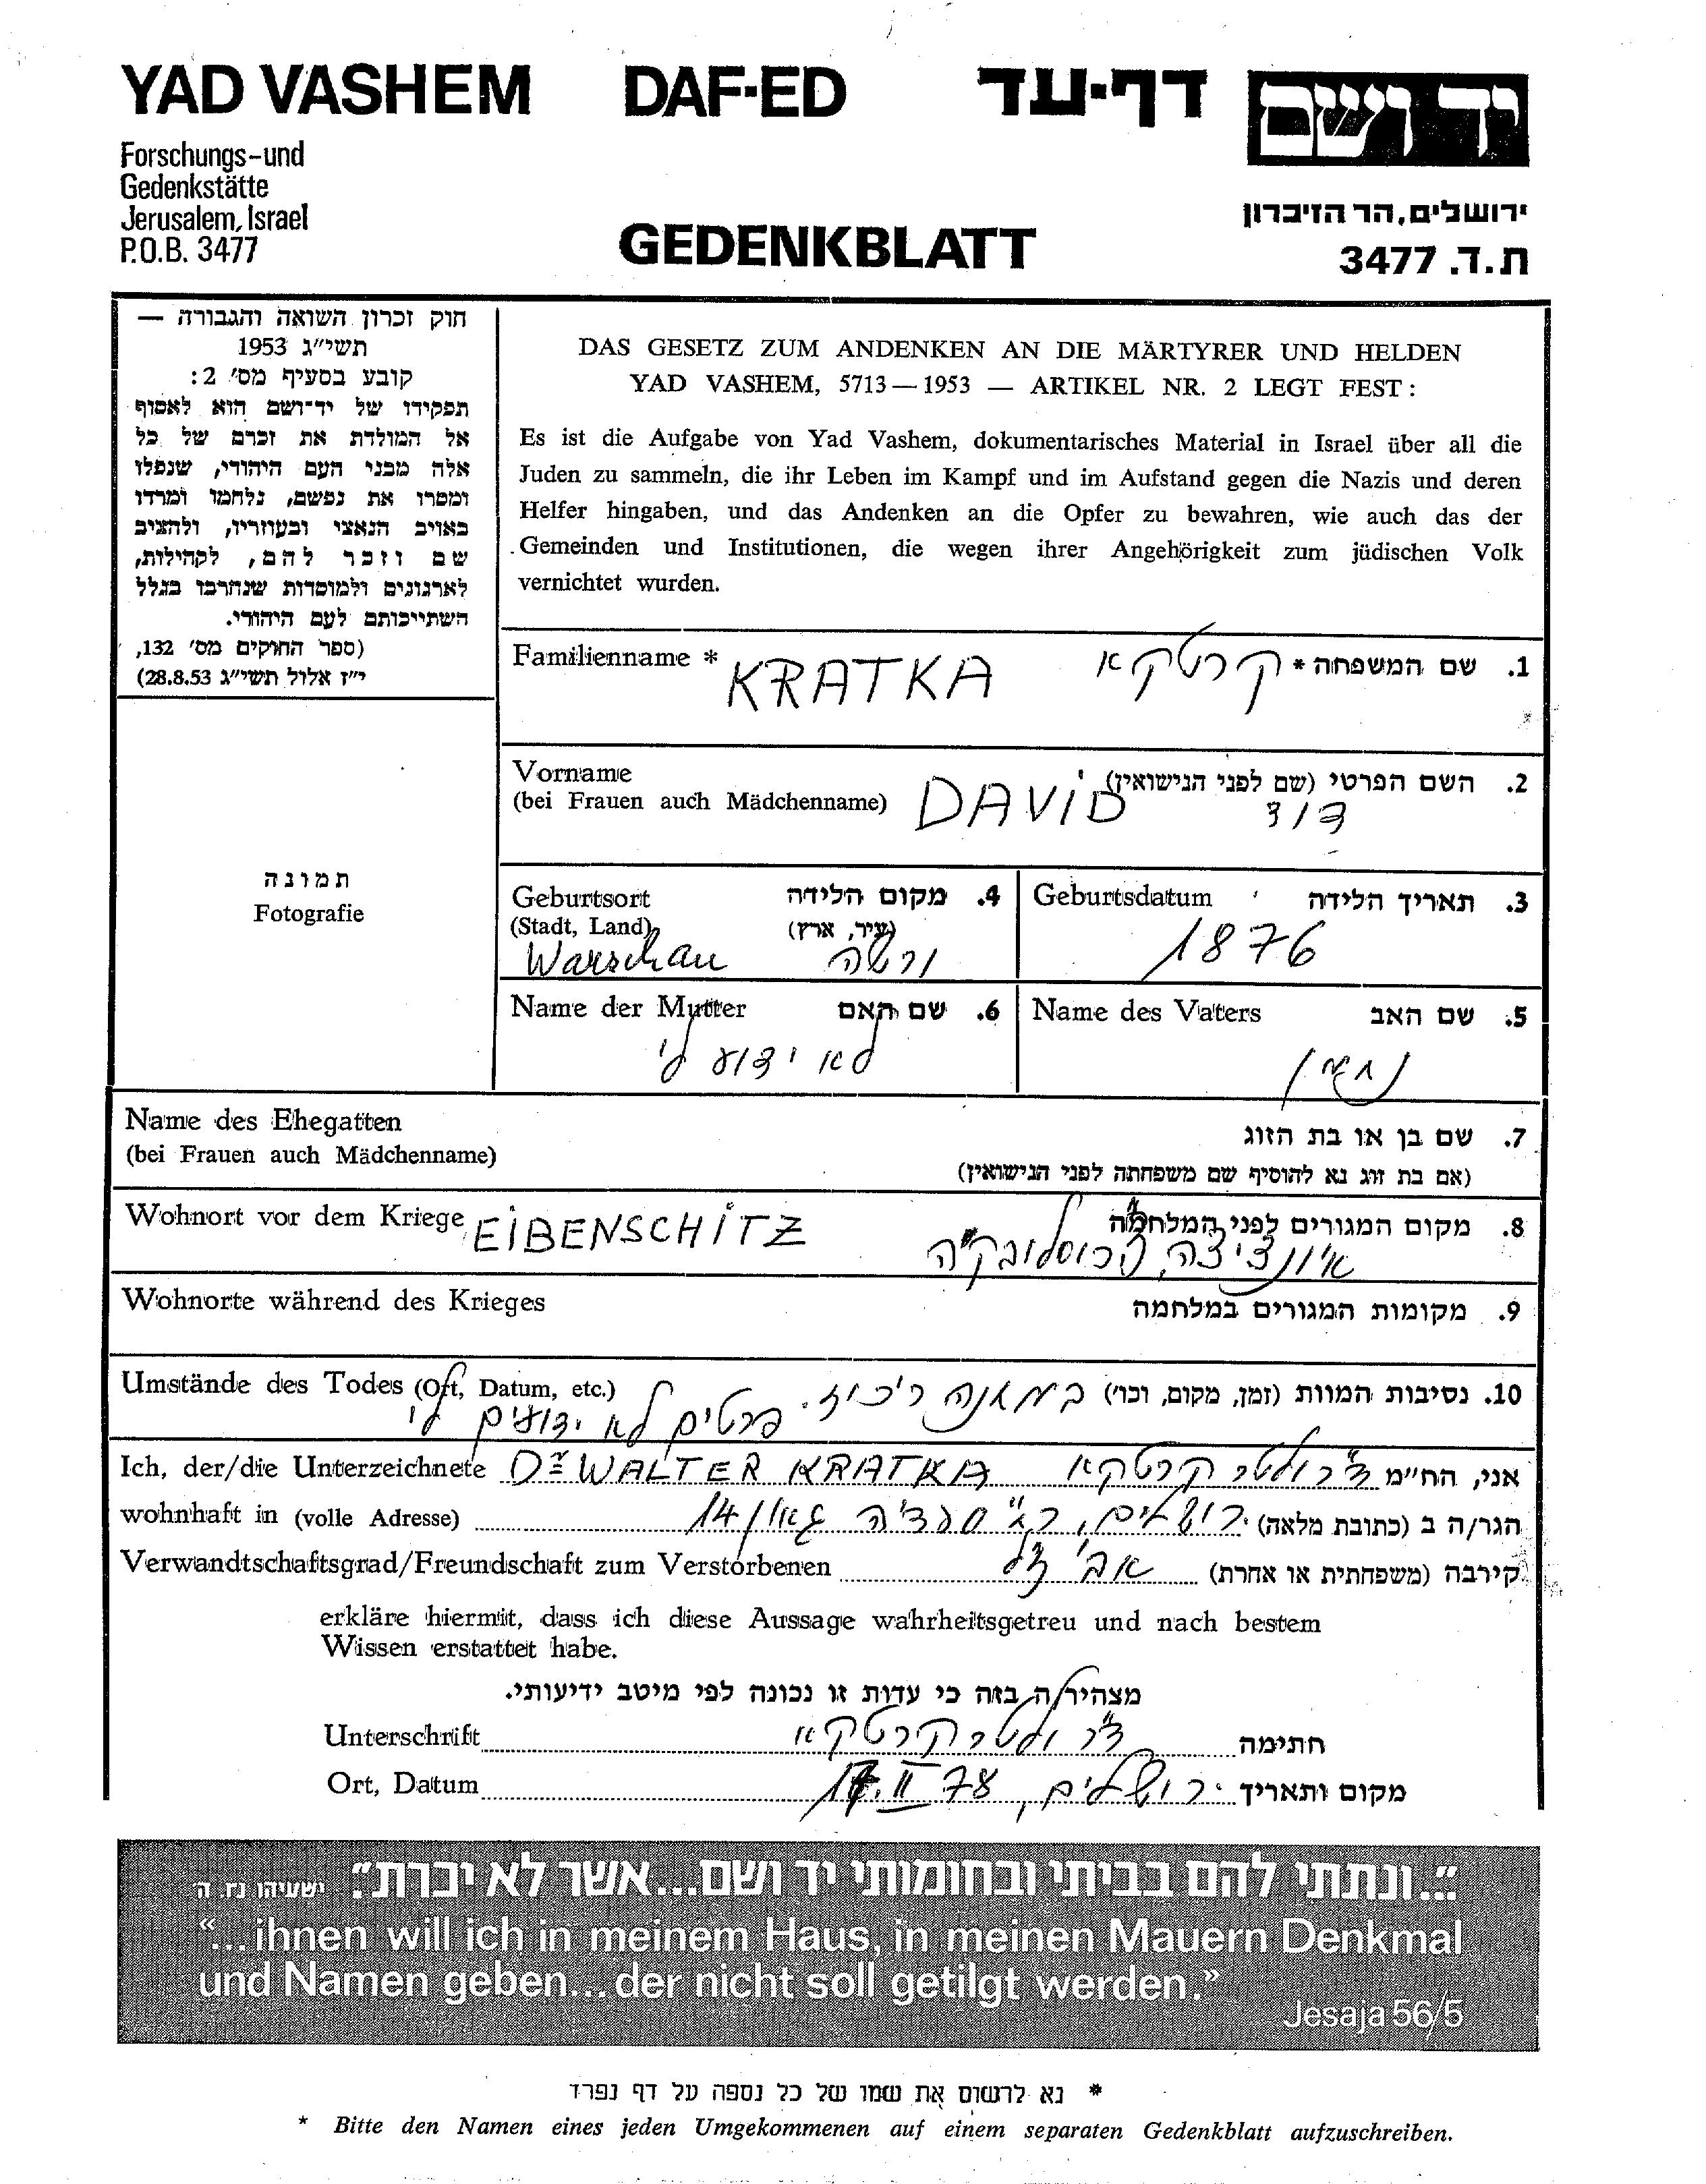 YAD VASHEM DAF-ED דף-עד יד ושם
Forschungs-und
Gedenkstätte
Jerusalem, Israel
P.O.B. 3477
GEDENKBLATT
ירושלים, הר הזיכרון
ת.ד. 3477
חוק זכרון השואה והגבורה —
תשי"ג 1953
קובע בסעיף מס' 2:
תפקידו של יד־ושם הוא לאסוף
אל המולדת את זכרם של כל
אלה מבני העם היהודי, שנפלו
ומסרו את נפשם, נלחמו ומרדו
באויב הנאצי ובעוזריו, ולהציב
שם וזכר להם, לקהילות,
לארגונים ולמוסדות שנחרבו בגלל
השתייכותם לעם היהודי.
(ספר החוקים מס' 132,
י"ז אלול תשי"ג 28.8.53)
DAS GESETZ ZUM ANDENKEN AN DIE MÄRTYRER UND HELDEN
YAD VASHEM, 5713 — 1953 — ARTIKEL NR. 2 LEGT FEST :
Es ist die Aufgabe von Yad Vashem, dokumentarisches Material in Israel über all die
Juden zu sammeln, die ihr Leben im Kampf und im Aufstand gegen die Nazis und deren
Helfer hingaben, und das Andenken an die Opfer zu bewahren, wie auch das der
Gemeinden und Institutionen, die wegen ihrer Angehörigkeit zum jüdischen Volk
vernichtet wurden.
Familienname * KRATKA קרטקא 1. שם המשפחה *
Vorname 2. השם הפרטי (שם לפני הנישואין)
(bei Frauen auch Mädchenname) DAVID דוד
תמונה
Fotografie
Geburtsort 4. מקום הלידה
(Stadt, Land) (עיר, ארץ)
Warschau ורשה
Geburtsdatum 3. תאריך הלידה
1876
Name der Mutter 6. שם האם
לא ידוע לי
Name des Vaters 5. שם האב
נתן
Name des Ehegatten 7. שם בן או בת הזוג
(bei Frauen auch Mädchenname) (אם בת זוג נא להוסיף שם משפחתה לפני הנישואין)
Wohnort vor dem Kriege EIBENSCHITZ 8. מקום המגורים לפני המלחמה
איונציצה, צ'כוסלובקיה
Wohnorte während des Krieges 9. מקומות המגורים במלחמה
Umstände des Todes (Ort, Datum, etc.) 10. נסיבות המוות (זמן, מקום, וכו') במחנה ריכוז.
פרטים לא ידועים לי
Ich, der/die Unterzeichnete Dr WALTER KRATKA אני, הח"מ ד"ר ולטר קרטקא
wohnhaft in (volle Adresse) הגר/ה ב (כתובת מלאה) ירושלים, רב סעדיה גאון 14
Verwandtschaftsgrad/Freundschaft zum Verstorbenen קירבה (משפחתית או אחרת) אבי ז"ל
erkläre hiermit, dass ich diese Aussage wahrheitsgetreu und nach bestem
Wissen erstattet habe.
מצהיר/ה בזה כי עדות זו נכונה לפי מיטב ידיעותי.
Unterschrift חתימה ד"ר ולטר קרטקא
Ort, Datum מקום ותאריך ירושלים, 17.II 78
"...ונתתי להם בביתי ובחומותי יד ושם...אשר לא יכרת". ישעיהו נו, ה'
"...ihnen will ich in meinem Haus, in meinen Mauern Denkmal
und Namen geben...der nicht soll getilgt werden."
Jesaja 56/5
* נא לרשום את שמו של כל נספה על דף נפרד
* Bitte den Namen eines jeden Umgekommenen auf einem separaten Gedenkblatt aufzuschreiben.